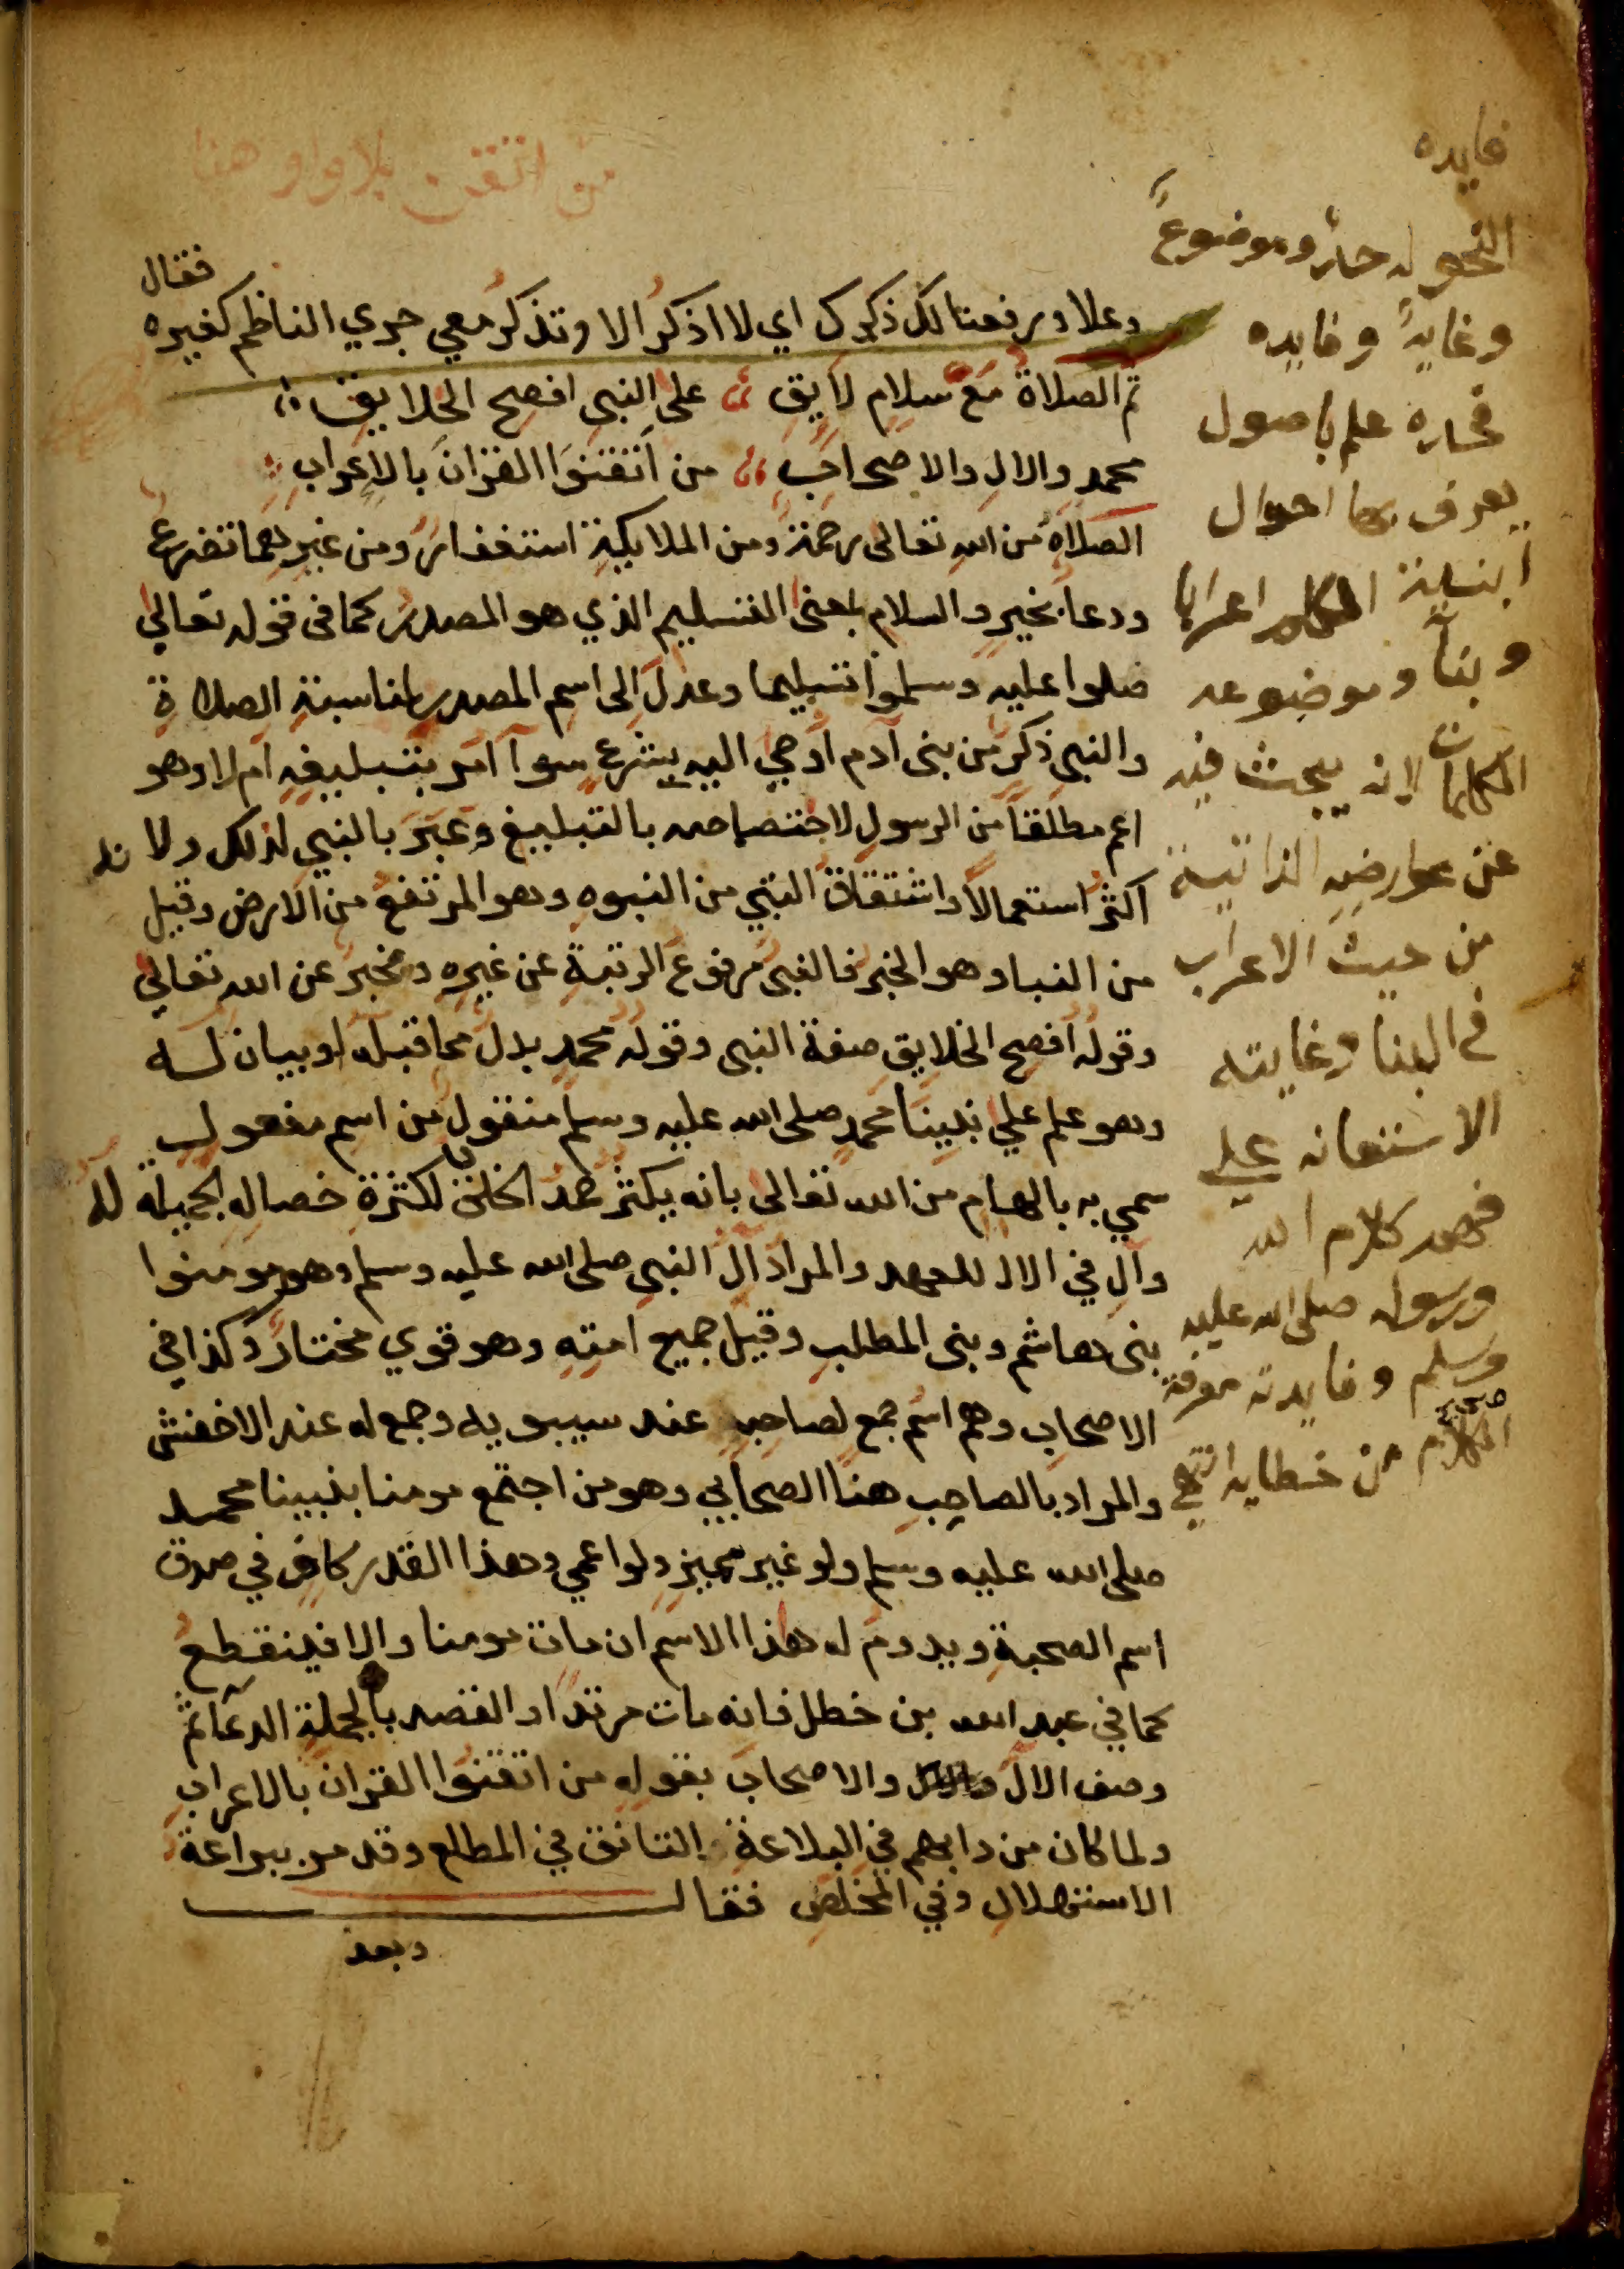 من اتقن بلا واو هنا
وعلا ورفعنا لك ذكرك اي لا اذكر الا وتذكر معي جري الناظم كغيره فقال
ثم الصلاة مع سلام لايق على النبي افصح الخلايق
محمد والال والاصحاب من اتقنوا القران بالاعراب
الصلاة من الله تعالى رحمة ومن الملايكة استغفار ومن غيرهما تضرع
ودعا بخير والسلام بمعنى التسليم الذي هو المصدر كما في قوله تعالى
صلوا عليه وسلموا تسليما وعدل الى اسم المصدر لمناسبة الصلاة
والنبي ذكر من بني آدم اوحي اليه بشرع سوآ امر بتبليغه ام لا وهو
اعم مطلقا من الرسول لاختصاصه بالتبليغ وعبر بالنبي لذلك ولانه
اكثر استعمالا واشتقاق النبي من النبوه وهو المرتفع من الارض وقيل
من النبا وهو الخبر فالنبي مرفوع الرتبة عن غيره ومخبر عن الله تعالى
وقوله افصح الخلايق صفة النبي وقوله محمد بدل مما قبله او بيان له
وهو علم علي نبينا محمد صلى الله عليه وسلم منقول من اسم مفعول
سمي به بالهام من الله تعالى بانه يكثر حمد الخلق له لكثرة خصاله الجميلة
وال في الال للعهد والمراد ال النبي صلى الله عليه وسلم وهو مومنوا
بني هاشم وبني المطلب وقيل جميع امته وهو قوي مختار وكذا في
الاصحاب وهم اسم جمع لصاحب عند سيبويه وجمع له عند الاخفش
والمراد بالصاحب هنا الصحابي وهو من اجتمع مومنا بنبينا محمد
صلى الله عليه وسلم ولو غير مميز ولو اعمي وهذا القدر كاف في صدق
اسم الصحبة ويدوم له هذا الاسم ان مات مومنا والا فينقطع
كما في عبد الله بن خطل فانه مات مرتدا والقصد بالجملة الدعا ثم
وصف الال والاصحاب بقوله من اتقنوا القران بالاعراب
ولما كان من دابهم في البلاغة التانق في المطلع وقد مر ببراعة
الاستهلال وفي المخلص فقال
وبعد
فايده
النحو له حد وموضوع
وغاية وفايده
فحده علم باصول
يعرف بها احوال
ابنية الكلم اعرابا
وبنآ وموضوعه
الكلمات لانه يبحث فيه
عن عوارضه الذاتية
من حيث الاعراب
والبنا وغايته
الاستعانه علي
فهم كلام الله
ورسوله صلى الله عليه
وسلم وفايدته معرفة
صحيح
الكلام من خطايه انتهي